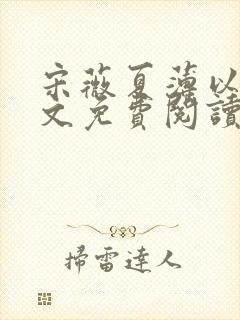 宋薇夏薄以
文免費閱讀
掃雷達人